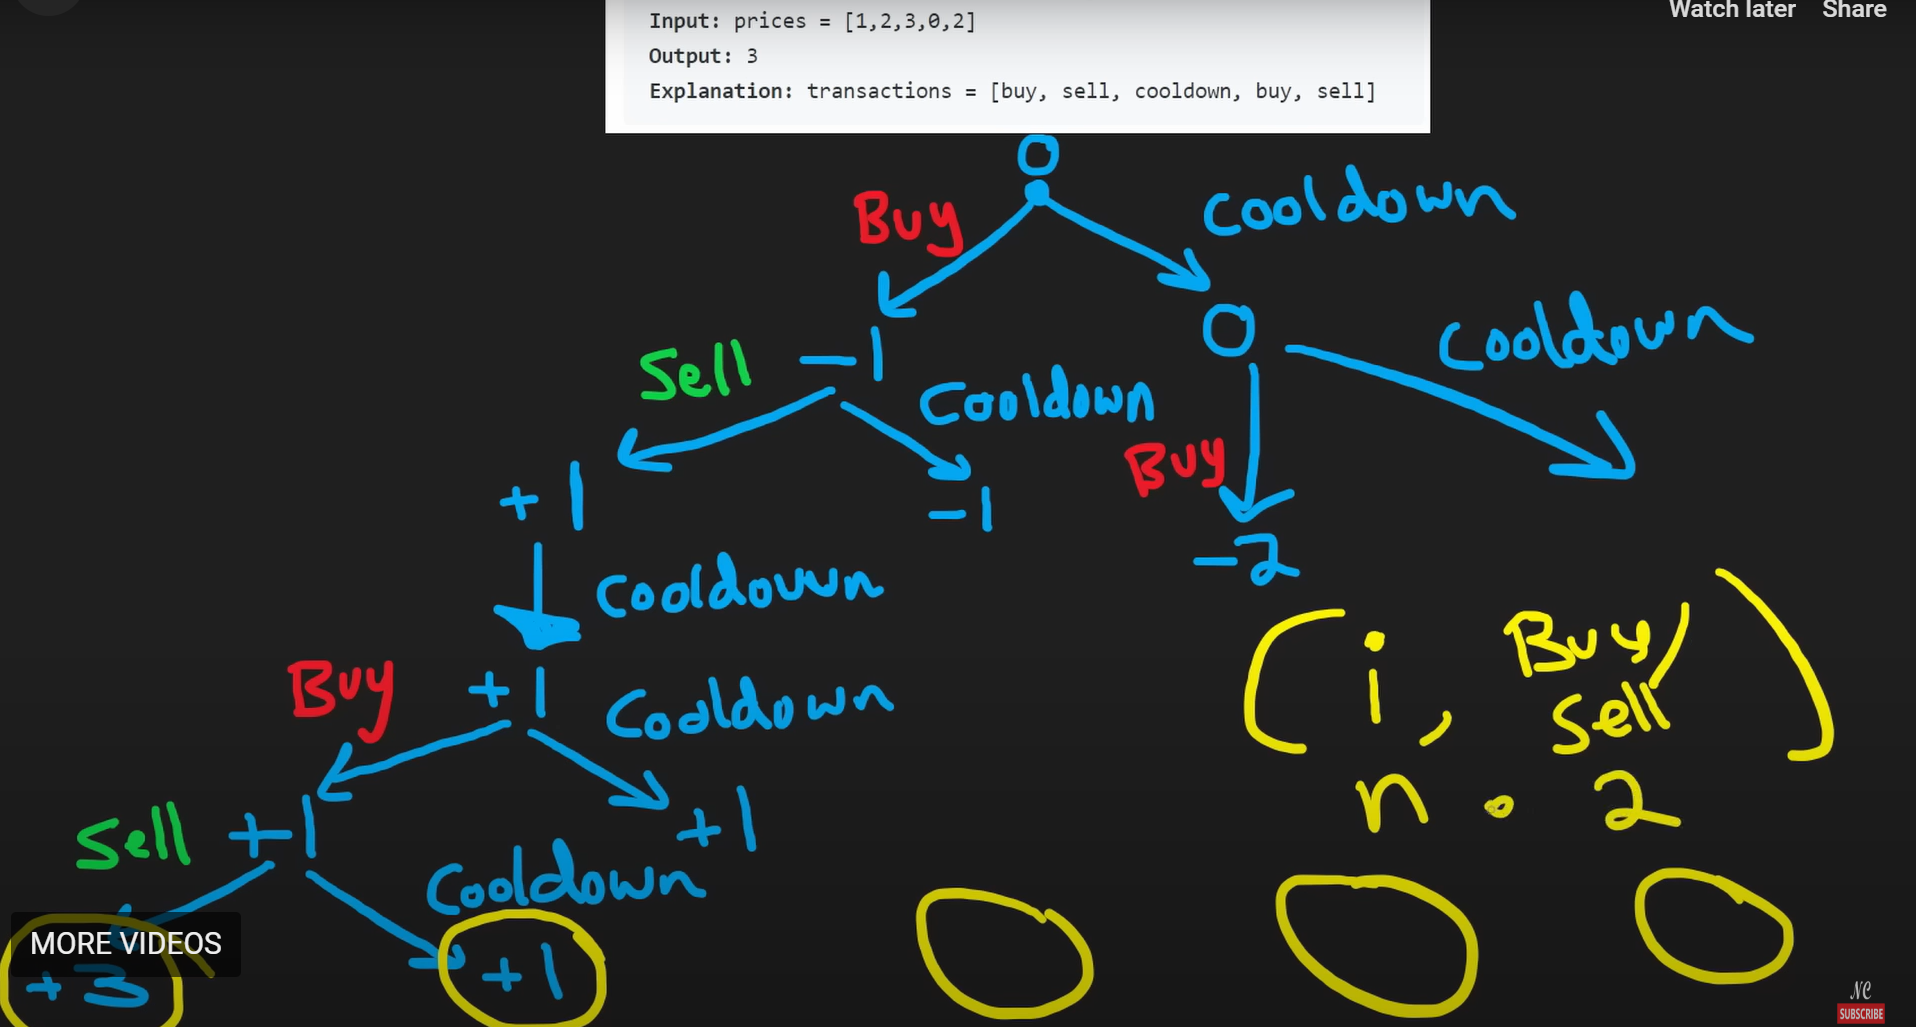 Watch later Share
Input: prices = [1,2,3,0,2]
Output: 3
Explanation: transactions = [buy, sell, cooldown, buy, sell]
0
Buy
Cooldown
-1
0
Sell
Cooldown
Cooldown
+1
-1
Buy
-2
Cooldown
(i, Buy/
Sell)
Buy
+1
Cooldown
n · 2
Sell
+1
+1
Cooldown
MORE VIDEOS
+3
+1
NC
SUBSCRIBE